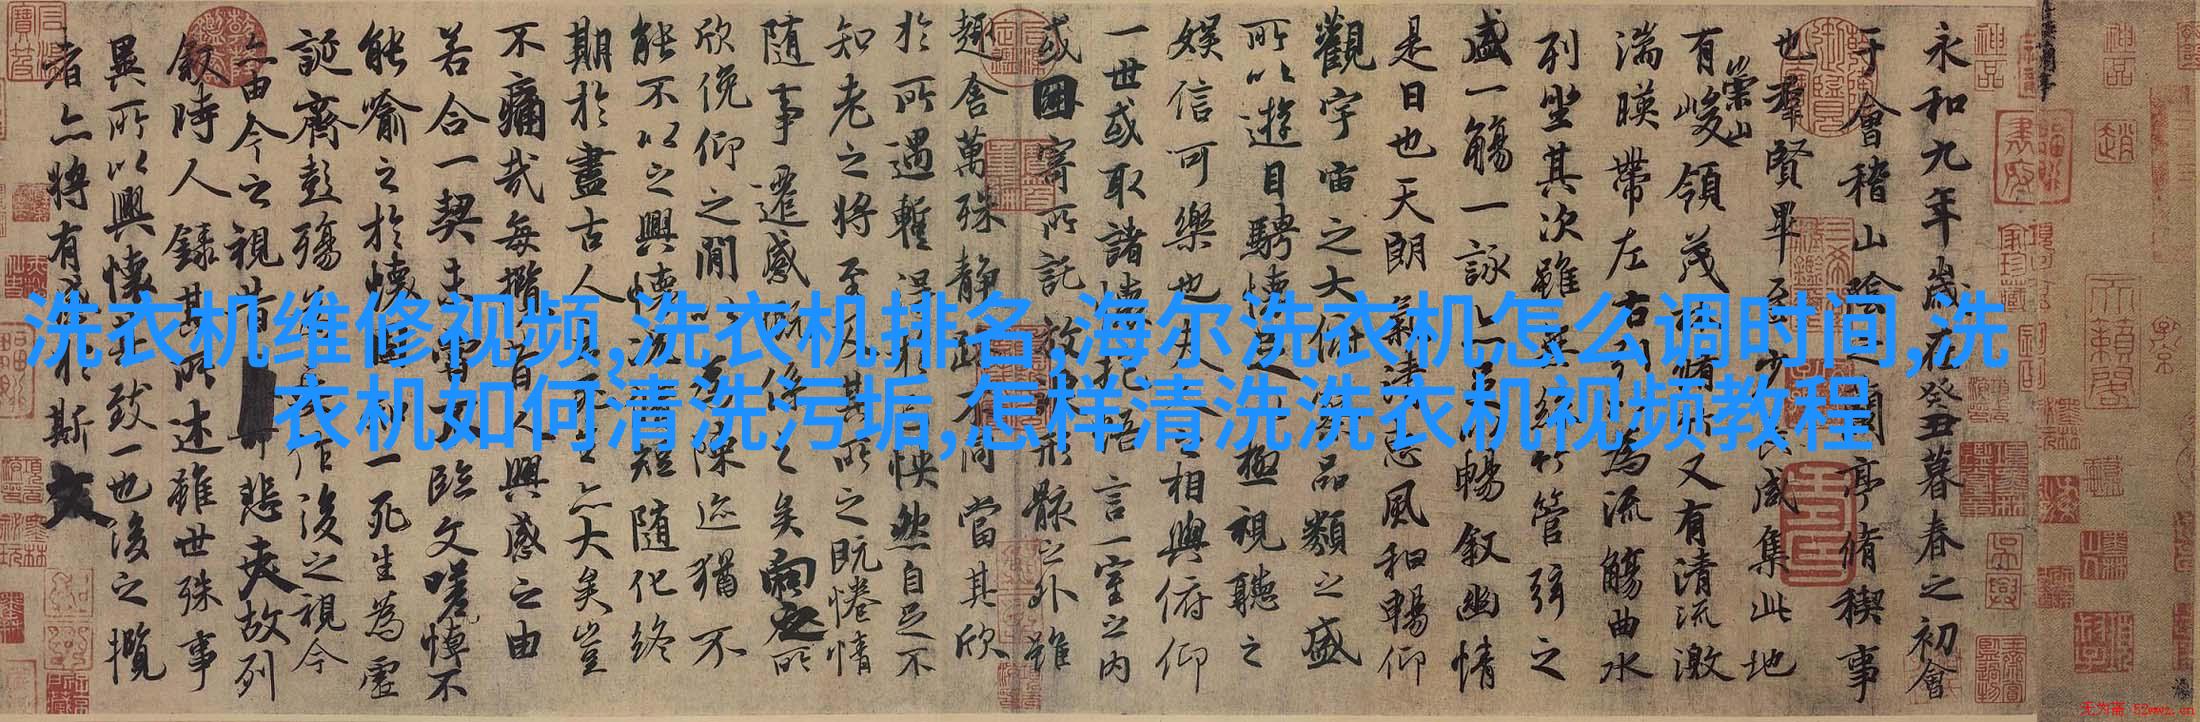 洗衣机维修视频,洗衣机排名,海尔洗衣机怎么调时间,洗
衣机如何清洗污垢,怎样清洗洗衣机视频教程
永和九年歲在癸丑暮春之初會
于會稽山陰之蘭亭脩稧事
也羣賢畢至少長咸集此地
有崇山峻領茂林脩竹又有清流激
湍暎帶左右引以為流觴曲水
列坐其次雖無絲竹管弦之
盛一觴一詠亦足以暢敘幽情
是日也天朗氣清惠風和暢仰
觀宇宙之大俯察品類之盛
所以遊目騁懷足以極視聽之
娛信可樂也夫人之相與俯仰
一世或取諸懷抱悟言一室之內
或因寄所託放浪形骸之外雖
趣舍萬殊靜躁不同當其欣
於所遇暫得於己怏然自足不
知老之將至及其所之既惓情
隨事遷感慨係之矣向之所
欣俛仰之閒以為陳迹猶不
能不以之興懷況脩短隨化終
期於盡古人云死生亦大矣豈
不痛哉每攬昔人興感之由
若合一契未嘗不臨文嗟悼不
能喻之於懷固知一死生為虛
誕齊彭殤為妄作後之視今
亦由今之視昔悲夫故列
敘時人錄其所述雖世殊事
異所以興懷其致一也後之攬
者亦將有感於斯文